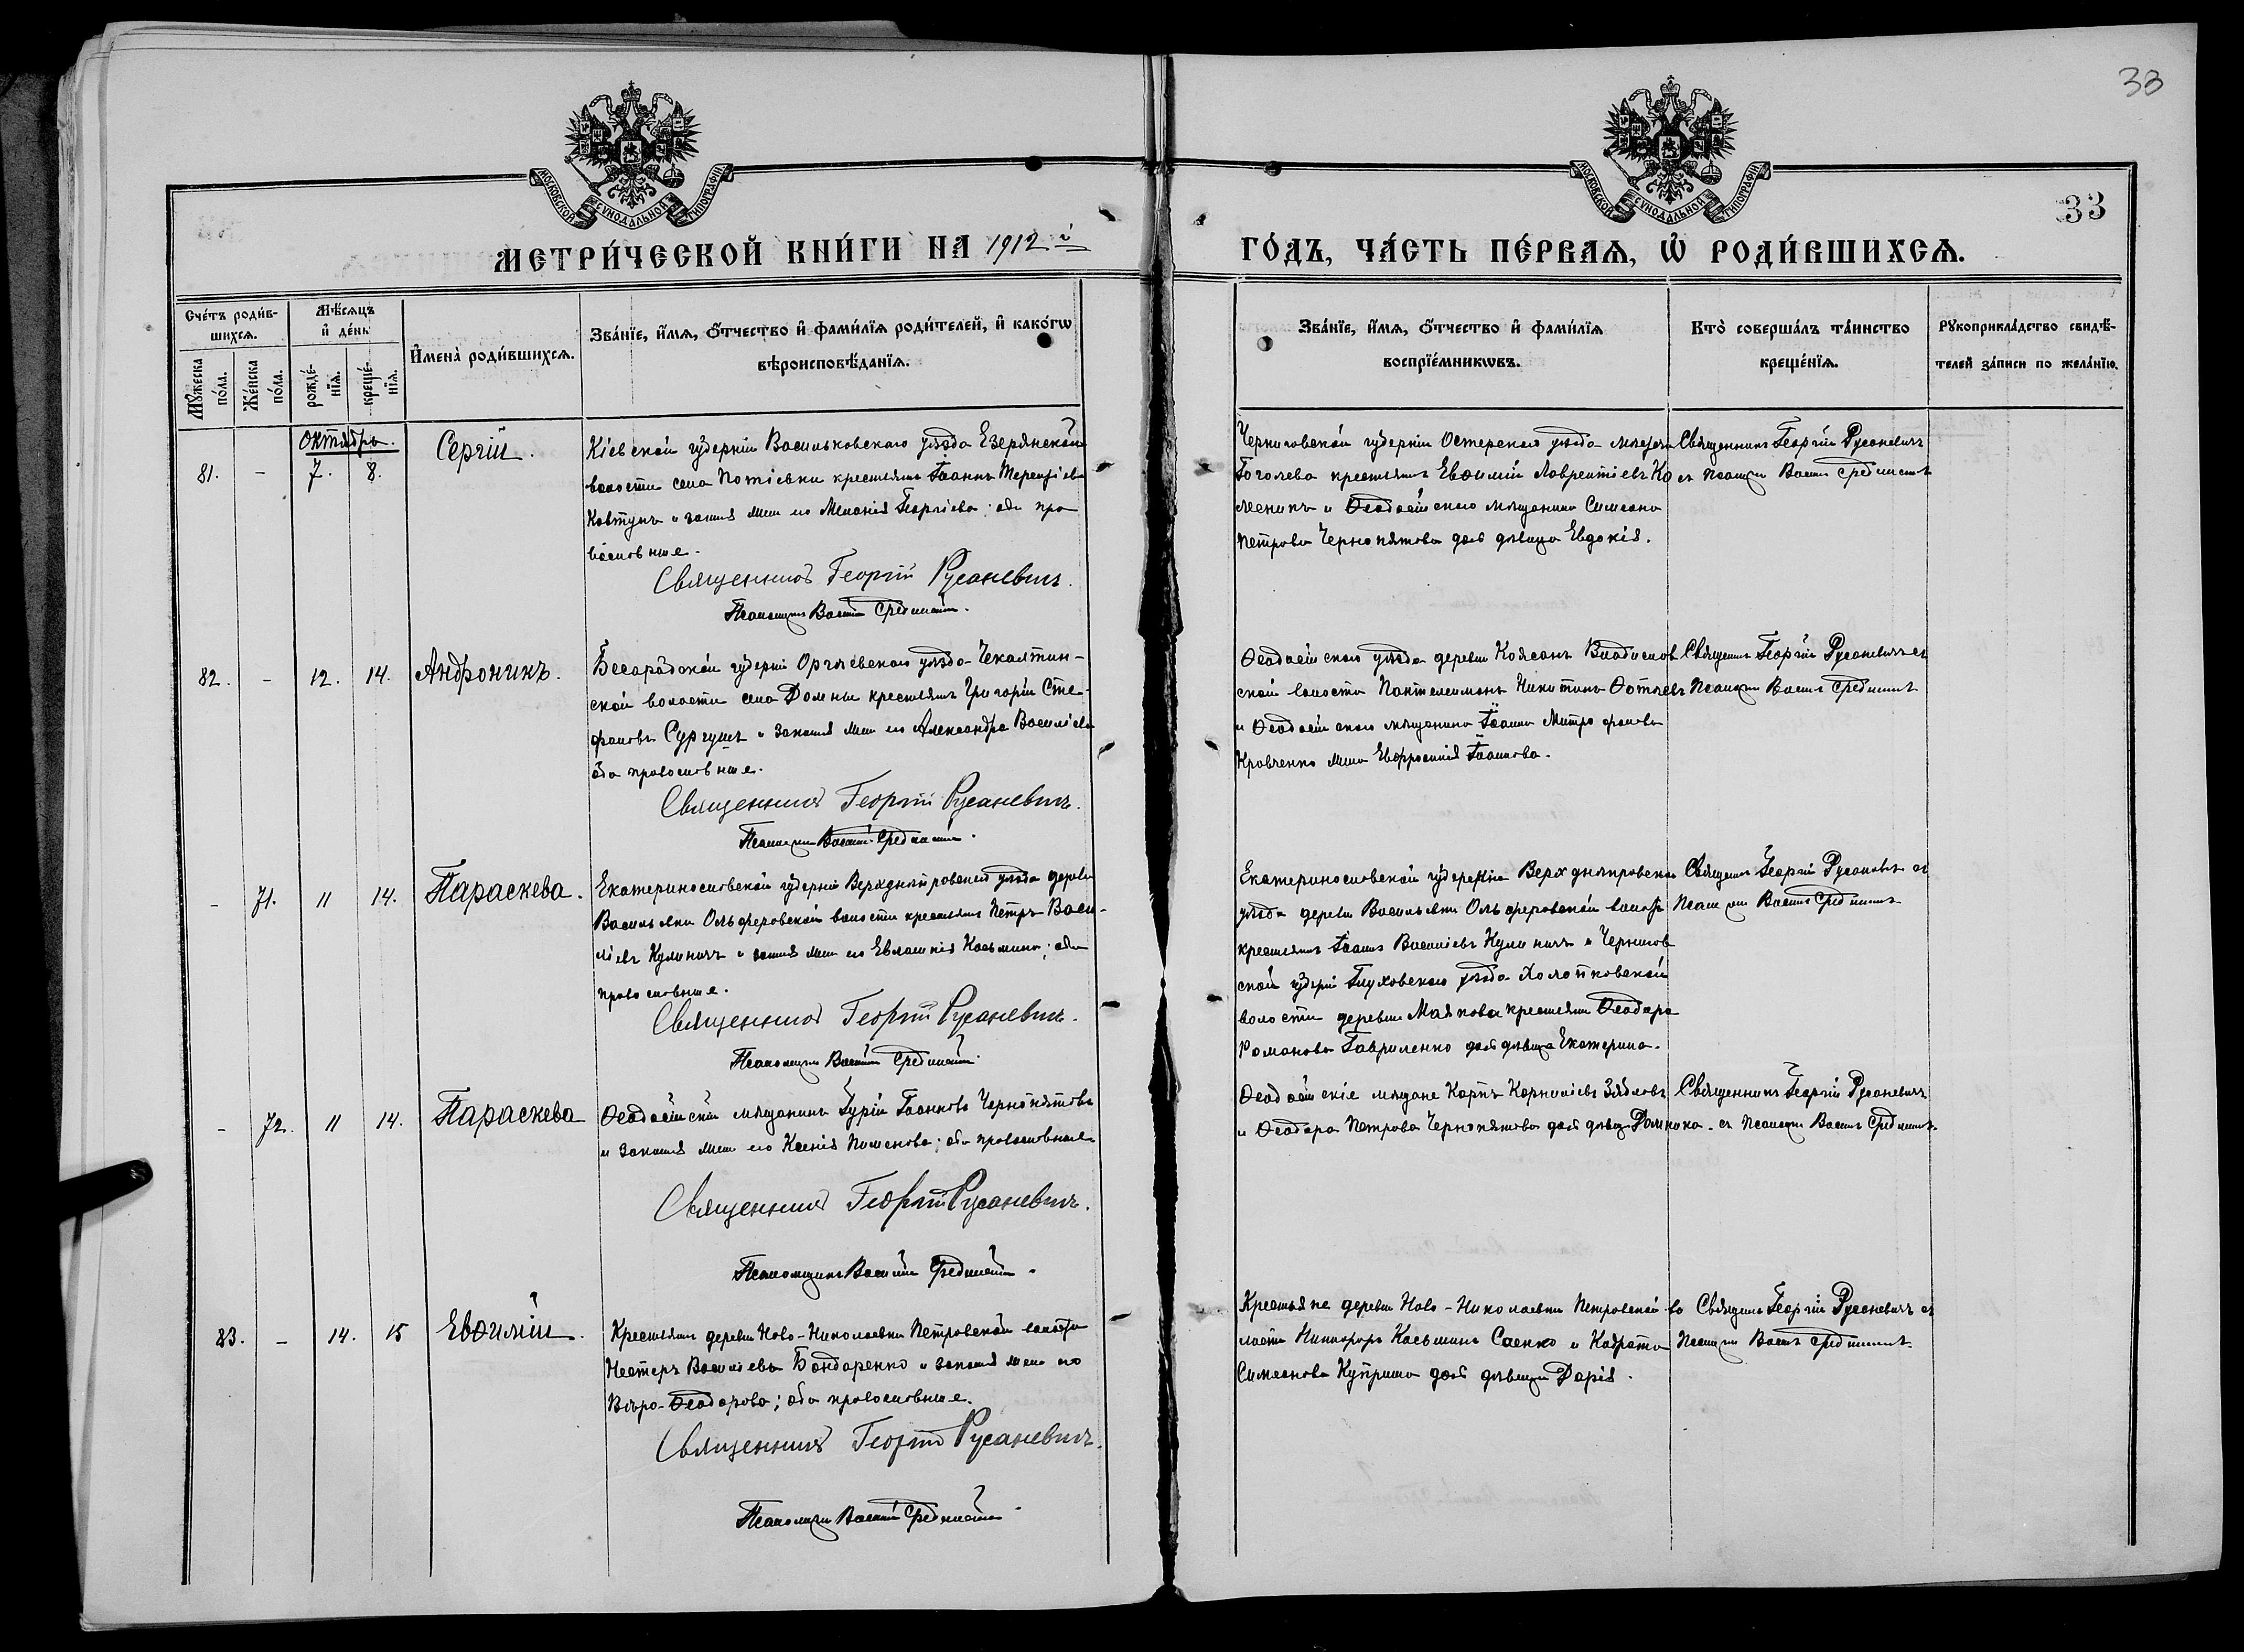 33
МОСКОВСКОЙ СѴНОДАЛЬНОЙ ТИПОГРАФІИ
МОСКОВСКОЙ СѴНОДАЛЬНОЙ ТИПОГРАФІИ
33
МЕТРИ́ЧЕСКОЙ КНИ́ГИ НА 1912 й
ГО́ДЪ, ЧА́СТЬ ПЕ́РВАѦ, Ѡ҆ РОДИ́ВШИХСѦ.
Сче́тъ роди́в-
шихсѧ.
Мꙋ́жеска по́ла.
Же́нска по́ла.
Мѣ́сѧцъ и҆ де́нь
рожде́нїѧ.
креще́нїѧ.
И҆мена̀ роди́вшихсѧ.
Зва́нїе, и҆́мѧ, ѻ҆́тчество и҆ фами́лїѧ роди́телей, и҆ како́гѡ
вѣроисповѣ́данїѧ.
Зва́нїе, и҆́мѧ, ѻ҆́тчество и҆ фами́лїѧ
воспрїе́мникѡвъ.
Кто̀ соверша́лъ та́инство
креще́нїѧ.
Рꙋкоприкла́дство свидѣ́-
телей за́писи по жела́нїю.
Октябрь.
81. - 7. 8. Сергій.
Кіевской губерніи Васильковскаго уѣзда Езерянской
волости села Потіевки крестьянинъ Іоаннъ Терентіевъ
Ковтунъ и законная жена его Меланія Георгіева; оба пра
вославные.
Священникъ Георгій Русаневичъ.
Псаломщикъ Василій
Черниговской губерніи Остерскаго уѣзда мѣстечка
Гоголева крестьянинъ Евѳимій Лаврентіевъ Ко
и Ѳеодосійскаго мѣщанина Симеона
Петрова Чернопятова дочь дѣвица Евдокія.
Священникъ Георгій Русаневичъ
съ псаломщ Васил
82. - 12. 14. Андроникъ.
Бессарабской губерніи Оргѣевскаго уѣзда Чекалтин-
ской волости села Домны крестьянинъ Григорій Сте-
фановъ и законная жена его Александра Василіева
оба православные.
Священникъ Георгій Русаневичъ.
Псаломщикъ Василій
Ѳеодосійскаго уѣзда деревни Коясанъ Владислав
ской волости Пантелеимонъ Никитинъ
и Ѳеодосійскаго мѣщанина Іоанна Митрофанова
Кравченко жена Евфросинія Іоаннова.
Священникъ Георгій Русаневичъ съ
Псаломщ Васил
- 71. 11 14. Параскева.
Екатеринославской губерніи Верхднѣпровскаго уѣзда деревни
Васильевки волости крестьянинъ Петръ Васи-
ліевъ Кулиничъ и законная жена его Евлампія Косьмина; оба
православные.
Священникъ Георгій Русаневичъ.
Псаломщикъ Василій
Екатеринославской губерніи Верхднѣпровскаго
уѣзда деревни Васильевки волости
крестьянинъ Іоаннъ Василіевъ Кулиничъ и Чернигов
ской губерніи Глуховскаго уѣзда Холопковской
волости деревни Маякова крестьянина Ѳеодора
Романова Гавриленко дочь дѣвица Екатерина.
Священникъ Георгій Русаневичъ съ
Псаломщ Васил
- 72. 11 14. Параскева
Ѳеодосійскій мѣщанинъ Гурій Іоанновъ Чернопятовъ
и законная жена его Ксенія Пименова; оба православные
Священникъ Георгій Русаневичъ.
Псаломщикъ Василій
Ѳеодосійскіе мѣщане Карпъ Корниліевъ Зябловъ
и Ѳеодора Петрова Чернопятова дочь дѣвица Домника.
Священникъ Георгій Русаневичъ
съ псаломщ Васил
83. - 14. 15 Евѳимій.
Крестьянинъ деревни Ново-Николаевки Петровской волости
Нестеръ Василіевъ Бондаренко и законная жена его
Вѣра Ѳеодорова; оба православные.
Священникъ Георгій Русаневичъ.
Псаломщикъ Василій
Крестьяне деревни Ново-Николаевки Петровской во
лости Никифоръ Косьминъ Саенко и Кодрата
Симеонова дочь дѣвица Дарія.
Священникъ Георгій Русаневичъ съ
Псаломщ Васил